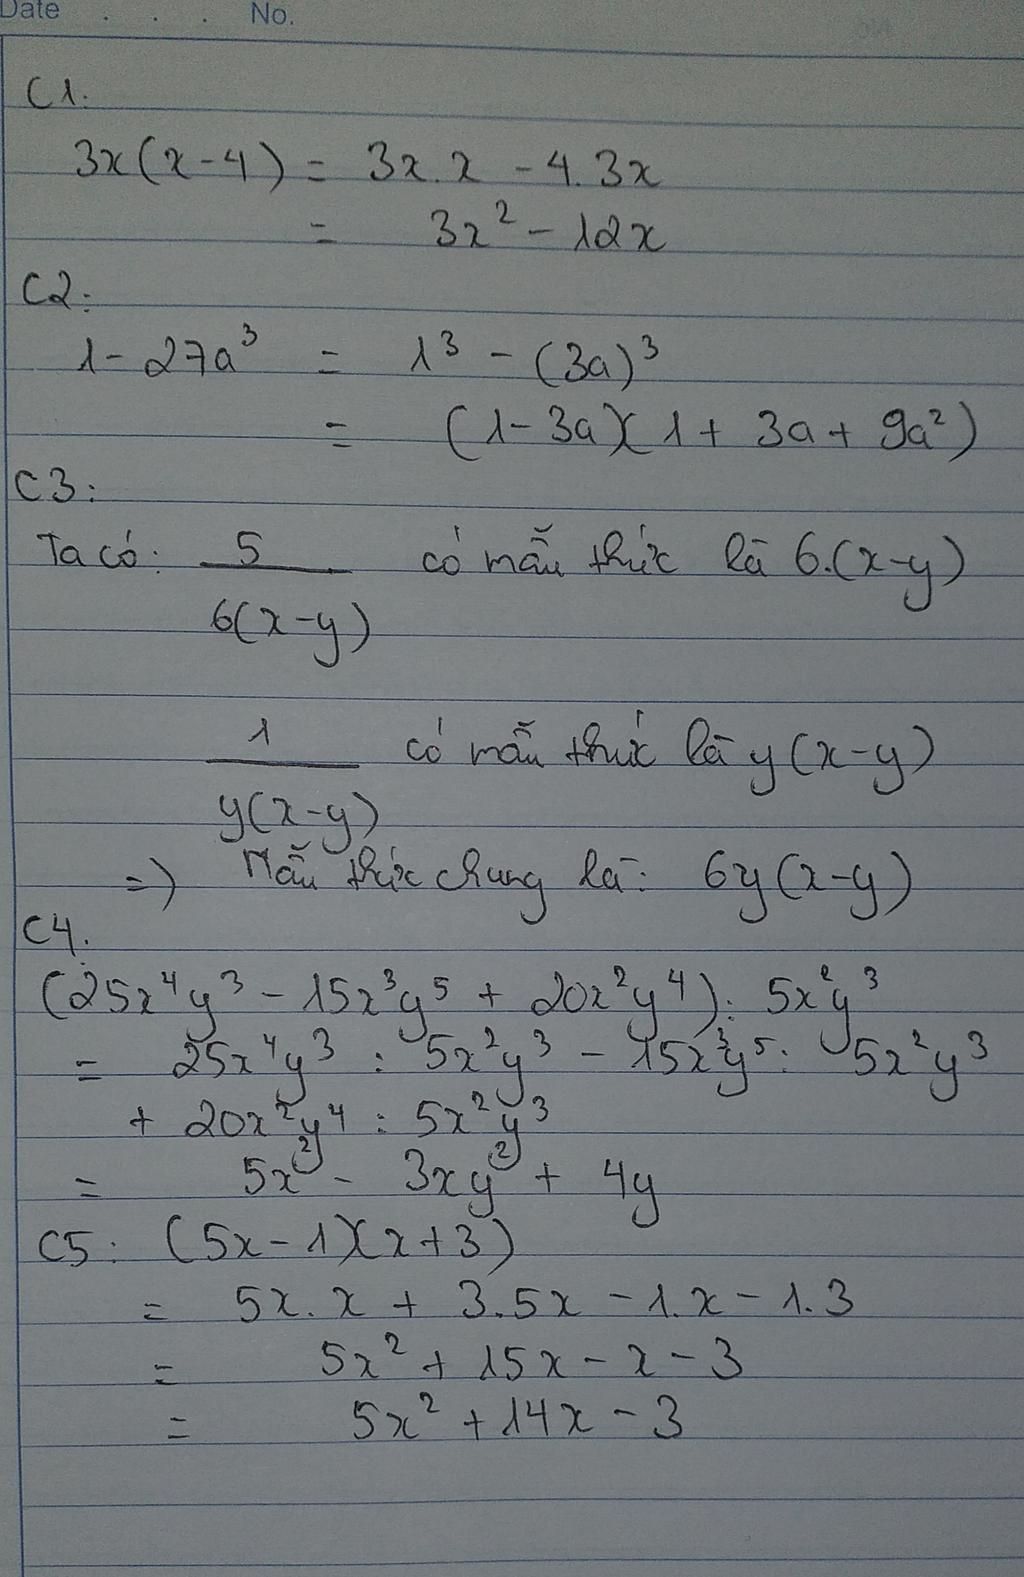 Date . . . No.
C1.
3x(x-4) = 3x.x - 4.3x
= 3x² - 12x
C2:
1 - 27a³ = 1³ - (3a)³
= (1-3a)(1 + 3a + 9a²)
C3:
Ta có: 5 có mẫu thức là 6.(x-y)
6(x-y)
1 có mẫu thức là y(x-y)
y(x-y)
=> Mẫu thức chung là: 6y(x-y)
C4.
(25x⁴y³ - 15x³y⁵ + 20x²y⁴): 5x²y³
= 25x⁴y³ : 5x²y³ - 15x³y⁵ : 5x²y³
+ 20x²y⁴ : 5x²y³
= 5x² - 3xy² + 4y
C5: (5x-1)(x+3)
= 5x.x + 3.5x - 1.x - 1.3
= 5x² + 15x - x - 3
= 5x² + 14x - 3